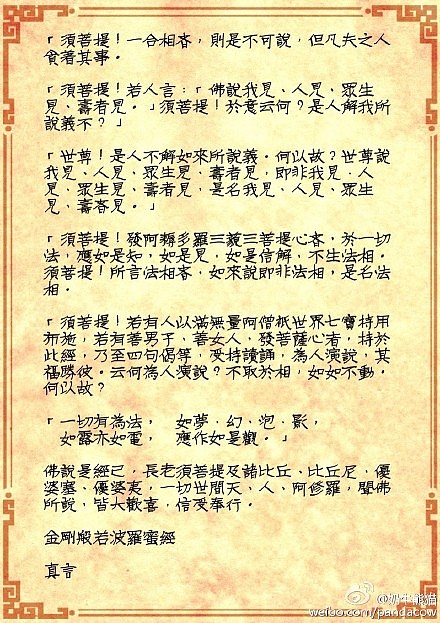 「須菩提！一合相者，則是不可說，但凡夫之人
貪著其事。
「須菩提！若人言：『佛說我見、人見、眾生
見、壽者見。』須菩提！於意云何？是人解我所
說義不？」
「世尊！是人不解如來所說義。何以故？世尊說
我見、人見、眾生見、壽者見，即非我見、人
見、眾生見、壽者見，是名我見、人見、眾生
見、壽者見。」
「須菩提！發阿耨多羅三藐三菩提心者，於一切
法，應如是知，如是見，如是信解，不生法相。
須菩提！所言法相者，如來說即非法相，是名法
相。
「須菩提！若有人以滿無量阿僧祇世界七寶持用
布施，若有善男子、善女人，發菩薩心者，持於
此經，乃至四句偈等，受持讀誦，為人演說，其
福勝彼。云何為人演說？不取於相，如如不動。
何以故？
「一切有為法，　如夢、幻、泡、影，
如露亦如電，　應作如是觀。」
佛說是經已，長老須菩提及諸比丘、比丘尼、優
婆塞、優婆夷，一切世間天、人、阿修羅，聞佛
所說，皆大歡喜，信受奉行。
金剛般若波羅蜜經
真言
weibo.com/pandacow